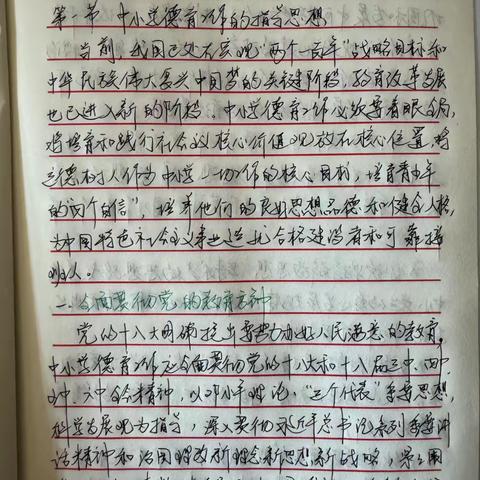 第一节 中小学德育工作的指导思想
当前，我国已处在实现"两个一百年"战略目标和
中华民族伟大复兴中国梦的关键阶段，教育改革发展
也已进入新的阶段。中小学德育工作必须着眼全局，
将培育和践行社会主义核心价值观放在核心位置，将
立德树人作为中小学一切工作的核心目标，培育青少年
的"四个自信"，培养他们的良好思想品德和健全人格，
为中国特色社会主义事业造就合格建设者和可靠接
班人。
一、全面贯彻党的教育方针
党的十八大明确提出要努力办好人民满意的教育。
中小学德育工作应全面贯彻党的十八大和十八届三中、四中、
五中、六中全会精神，以邓小平理论、"三个代表"重要思想、
科学发展观为指导，深入贯彻习近平总书记系列重要讲
话精神和治国理政新理念新思想新战略，